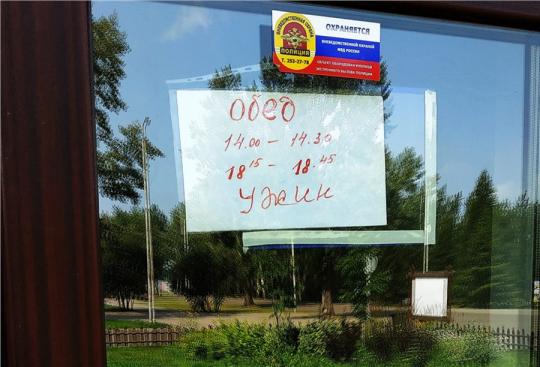 ОХРАНЯЕТСЯ
ВНЕВЕДОМСТВЕННАЯ ОХРАНА
ПОЛИЦИЯ
Т. 253-27-78
ВНЕВЕДОМСТВЕННОЙ ОХРАНОЙ
МВД РОССИИ
ОБЪЕКТ ОБОРУДОВАН КНОПКОЙ
ЭКСТРЕННОГО ВЫЗОВА ПОЛИЦИИ
Обед
14.00 - 14.30
18 15 - 18.45
Ужин